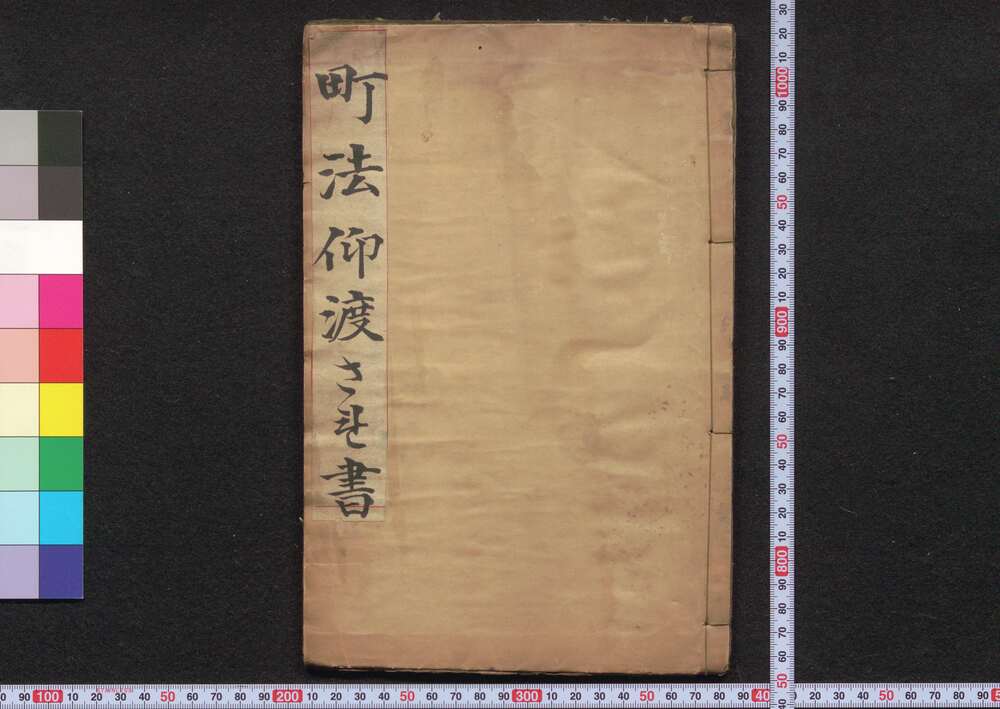 町法仰渡され書